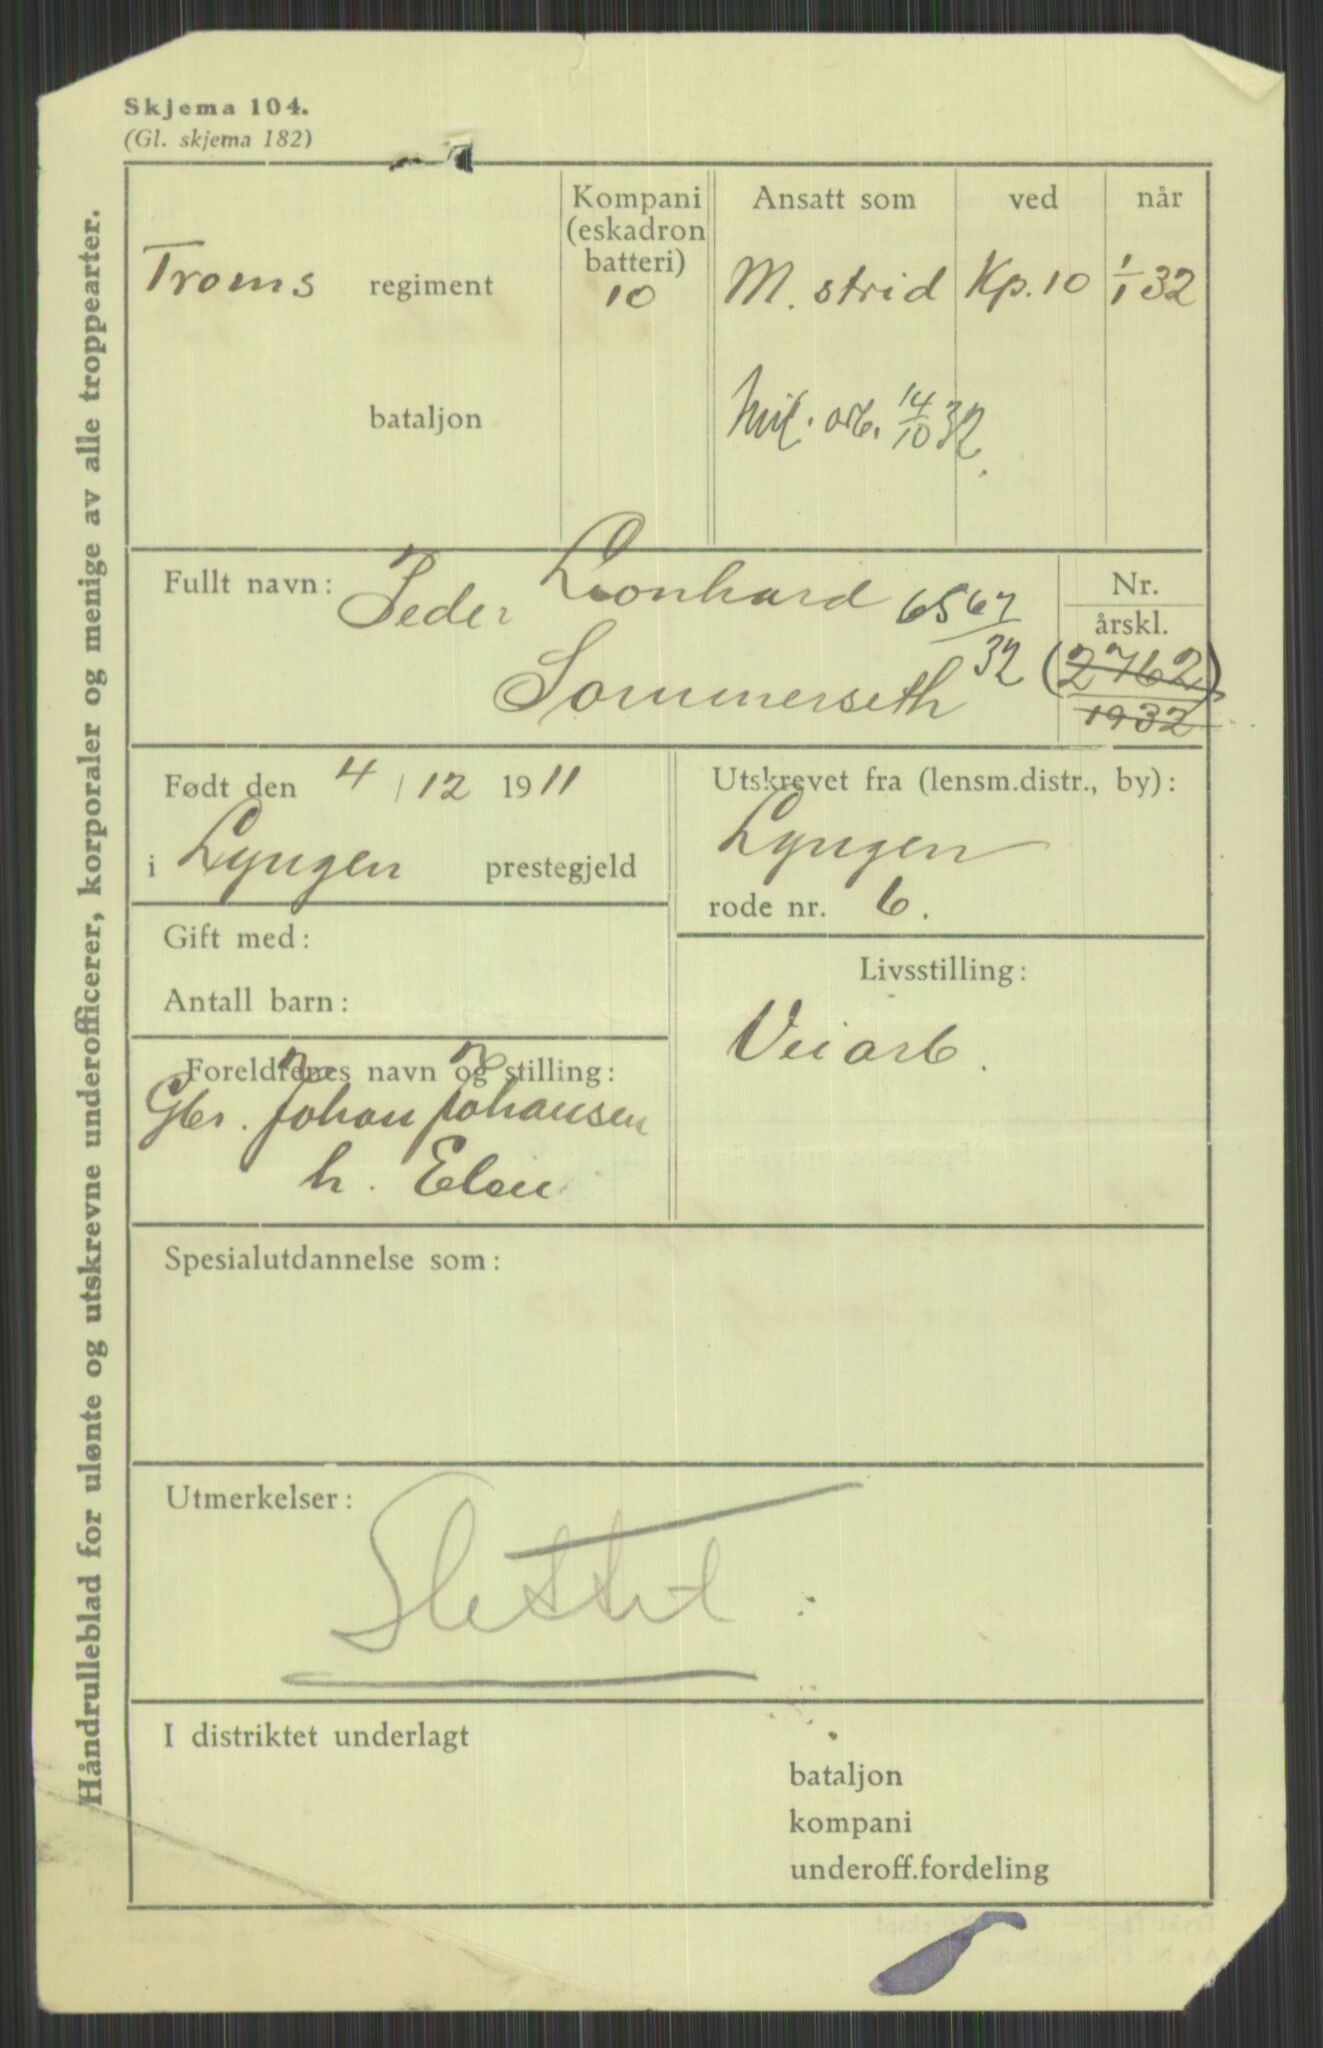 Skjema 104.
(Gl. skjema 182)
Håndrulleblad for ulønte og utskrevne underofficerer, korporaler og menige av alle troppearter.
Troms regiment
bataljon
Kompani
(eskadron
batteri)
10
Ansatt som ved når
M. strid Kp. 10 1/1 32
Mil. arb. 14/10 32.
Fullt navn: Peder Leonhard
Sommerseth
6567/32
Nr.
årskl.
(2762)
1932
Født den 4/12 1911
i Lyngen prestegjeld
Utskrevet fra (lensm.distr., by):
Lyngen
rode nr. 6.
Gift med:
Antall barn:
Livsstilling:
Veiarb.
Foreldrenes navn og stilling:
Gbr. Johan Johansen
h. Elen
Spesialutdannelse som:
Utmerkelser:
Slettet
I distriktet underlagt
bataljon
kompani
underoff.fordeling